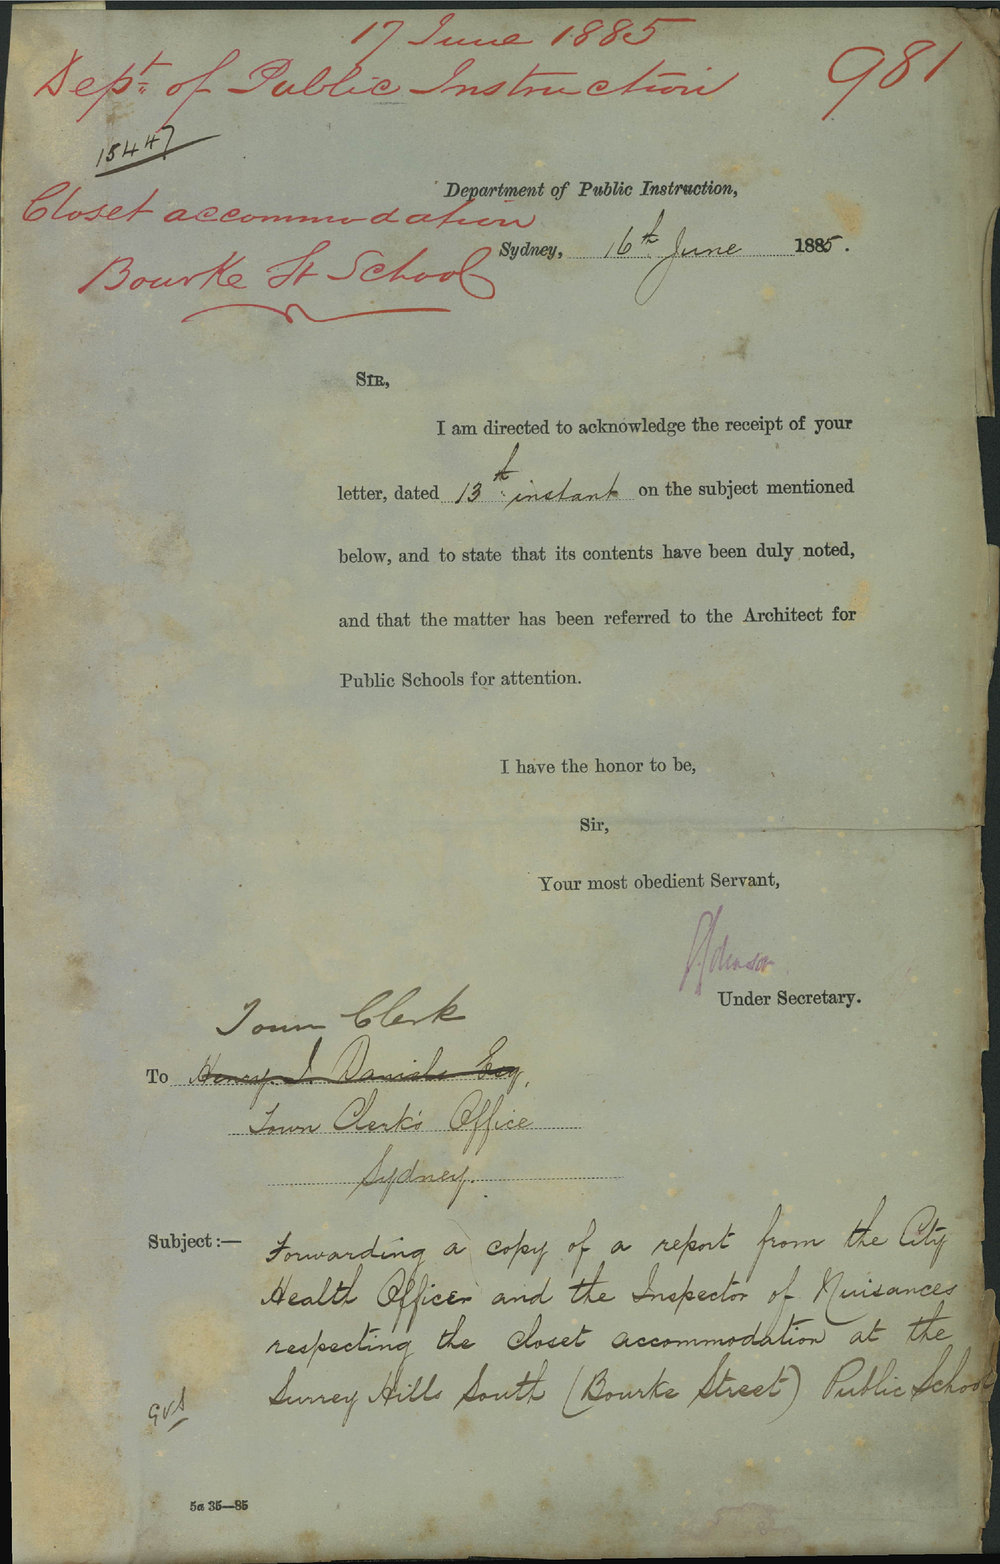 17 June 1885
Dept of Public Instruction
981
15447
Closet accommodation
Bourke St School
Department of Public Instruction,
Sydney, 16th June 1885.
SIR,
I am directed to acknowledge the receipt of your
letter, dated 13th instant on the subject mentioned
below, and to state that its contents have been duly noted,
and that the matter has been referred to the Architect for
Public Schools for attention.
I have the honor to be,
Sir,
Your most obedient Servant,
Under Secretary.
Town Clerk
To Henry J. Daniels Esq,
Town Clerk's Office
Sydney.
Subject:— Forwarding a copy of a report from the City
Health Officer and the Inspector of Nuisances
respecting the closet accommodation at the
Surrey Hills South (Bourke Street) Public School
5a 35—85